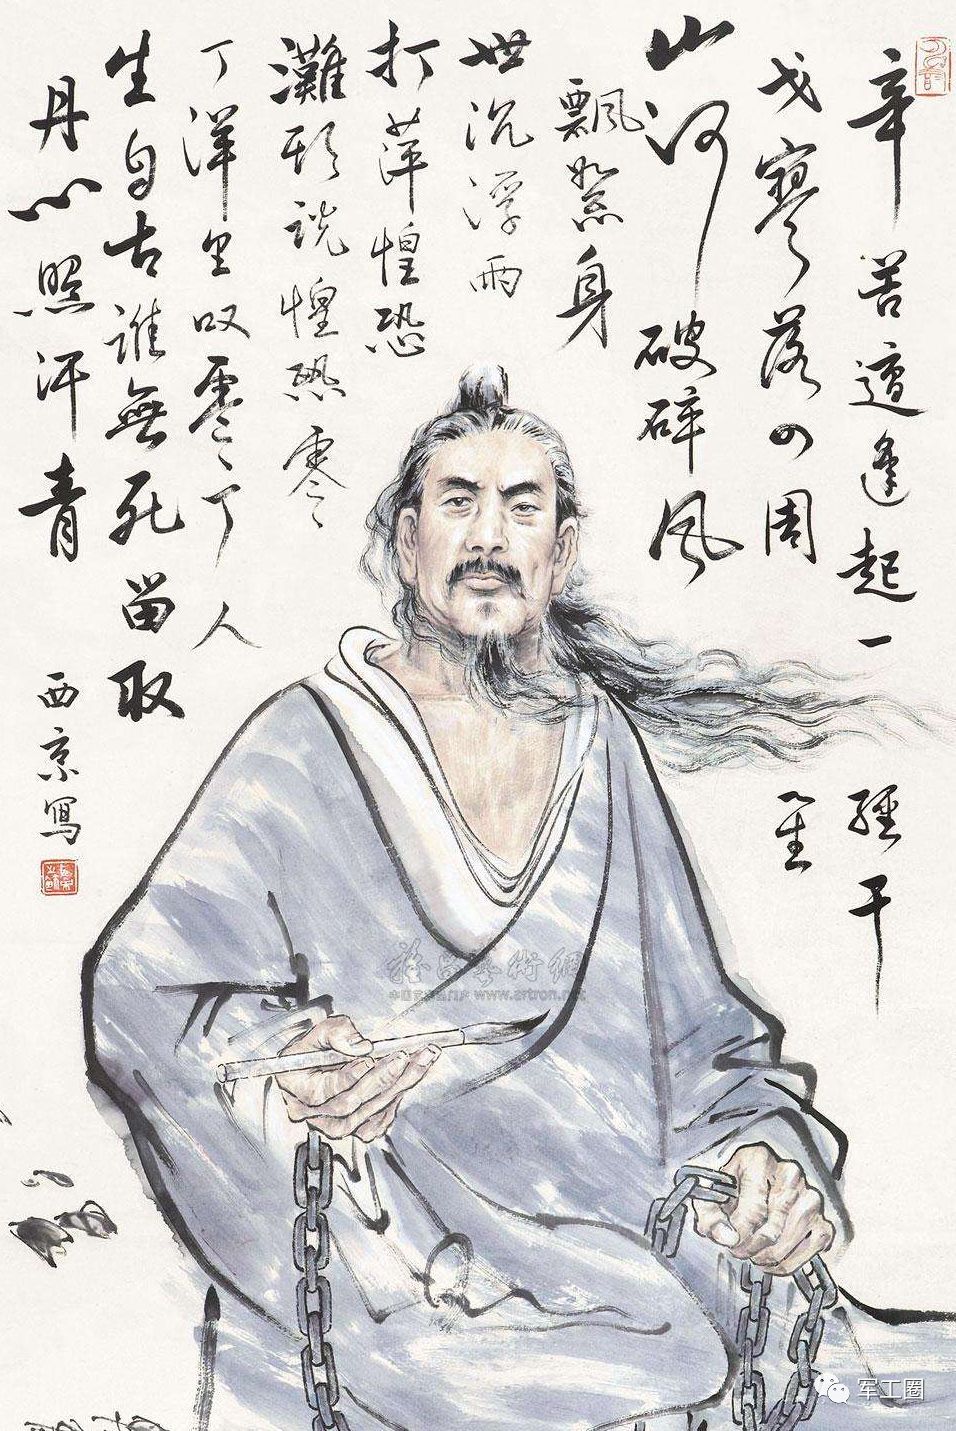 辛苦遭逢起一經干
戈寥落四周星
山河破碎风
飄絮身
世沉浮雨
打萍惶恐
灘頭說惶恐零
丁洋里叹零丁人
生自古誰無死留取
丹心照汗青
西京寫
雅昌藝術網
www.artron.net
军工圈